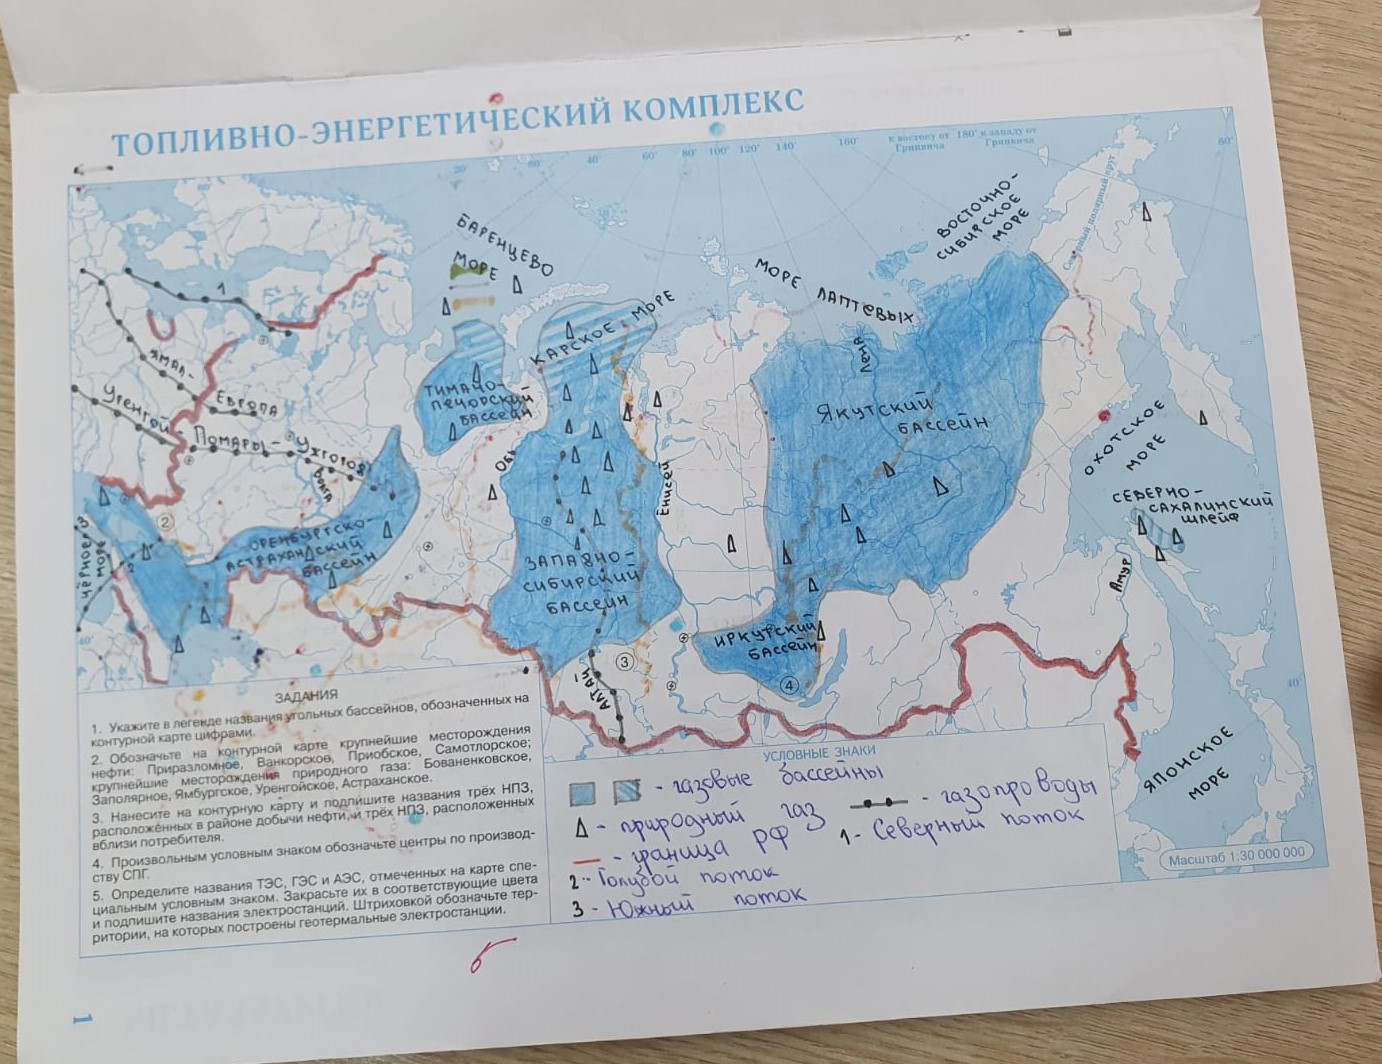 ТОПЛИВНО-ЭНЕРГЕТИЧЕСКИЙ КОМПЛЕКС
20°
40°
60°
80°
100°
120°
140°
160°
к востоку от 180° к западу от
Гринвича Гринвича
60°
Северный полярный круг
БАРЕНЦЕВО
МОРЕ
КАРСКОЕ МОРЕ
МОРЕ ЛАПТЕВЫХ
ВОСТОЧНО-
СИБИРСКОЕ
МОРЕ
1
ЯМАЛ-
ЕВРОПА
Уренгой
Помары-
Ужгород
ТИМАНО-
ПЕЧОРСКИЙ
БАССЕЙН
Обь
Енисей
Лена
Волга
ЯКУТСКИЙ
БАССЕЙН
ОХОТСКОЕ
МОРЕ
СЕВЕРНО-
САХАЛИНСКИЙ
ШЛЕЙФ
Амур
ЧЕРНОЕ
МОРЕ
3
2
2
ОРЕНБУРГСКО-
АСТРАХАНСКИЙ
БАССЕЙН
ЗАПАДНО-
СИБИРСКИЙ
БАССЕЙН
ИРКУТСКИЙ
БАССЕЙН
3
4
АЛТАЙ
40°
40°
ЯПОНСКОЕ
МОРЕ
ЗАДАНИЯ
1. Укажите в легенде названия угольных бассейнов, обозначенных на
контурной карте цифрами.
2. Обозначьте на контурной карте крупнейшие месторождения
нефти: Приразломное, Ванкорское, Приобское, Самотлорское;
крупнейшие месторождения природного газа: Бованенковское,
Заполярное, Ямбургское, Уренгойское, Астраханское.
3. Нанесите на контурную карту и подпишите названия трёх НПЗ,
расположенных в районе добычи нефти, и трёх НПЗ, расположенных
вблизи потребителя.
4. Произвольным условным знаком обозначьте центры по производ-
ству СПГ.
5. Определите названия ТЭС, ГЭС и АЭС, отмеченных на карте спе-
циальным условным знаком. Закрасьте их в соответствующие цвета
и подпишите названия электростанций. Штриховкой обозначьте тер-
ритории, на которых построены геотермальные электростанции.
УСЛОВНЫЕ ЗНАКИ
- газовые бассейны
- природный газ
- газопроводы
- граница РФ
1- Северный поток
2- Голубой поток
3 - Южный поток
Масштаб 1:30 000 000
5
1